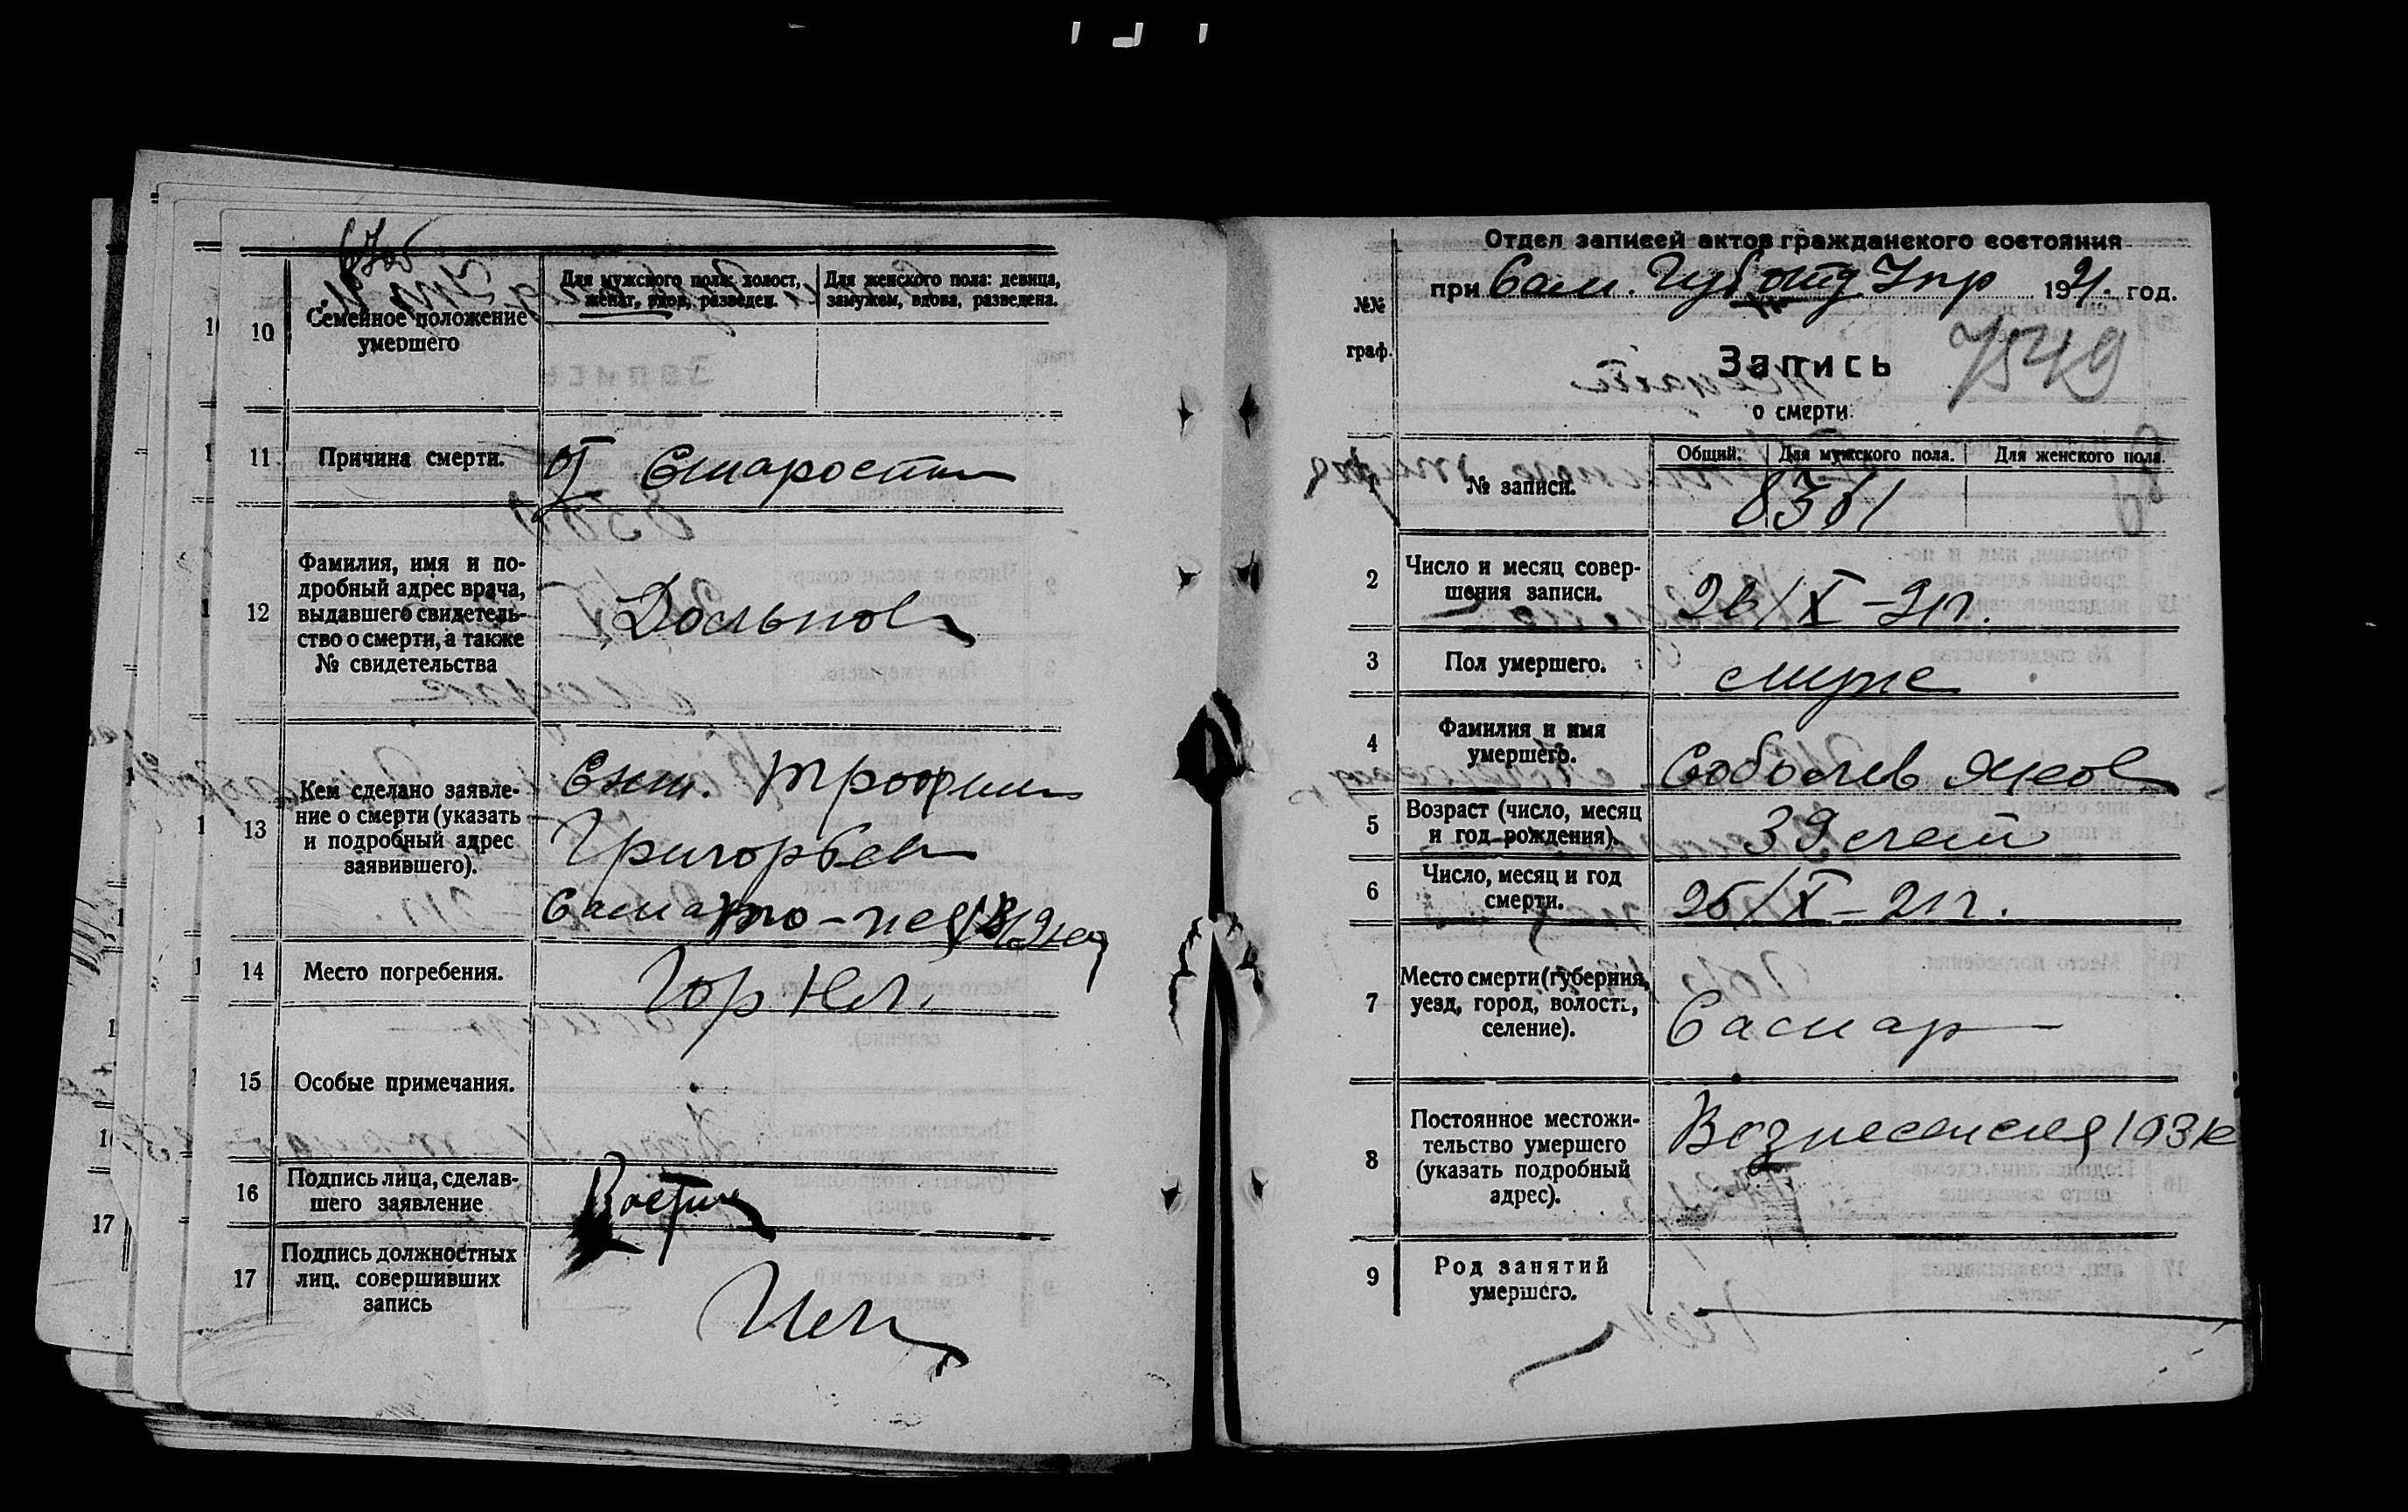 10
Семейное положение
умершего
Для мужского пола: холост,
женат, вдов, разведен.
Для женского пола: девица,
замужем, вдова, разведена.
11
Причина смерти.
от Старости
12
Фамилия, имя и по-
дробный адрес врача,
выдавшего свидетель-
ство о смерти, а также
№ свидетельства
Дольнов
13
Кем сделано заявле-
ние о смерти (указать
и подробный адрес
заявившего).
Трофим
Григорьев
14
Место погребения.
Гор
15
Особые примечания.
16
Подпись лица, сделав-
шего заявление
17
Подпись должностных
лиц, совершивших
запись
17
Отдел записей актов гражданского состояния
при Сам. Губ отд Упр 1921. год.
№№
граф.
7549
Запись
о смерти.
1
№ записи.
Общий.
Для мужского пола.
Для женского пола.
2
Число и месяц совер-
шения записи.
26/X-21г.
3
Пол умершего.
муж
4
Фамилия и имя
умершего.
Соболев Яков
5
Возраст (число, месяц
и год рождения).
39 лет
6
Число, месяц и год
смерти.
25/X-21г.
7
Место смерти (губерния,
уезд, город, волость,
селение).
Самар
8
Постоянное местожи-
тельство умершего
(указать подробный
адрес).
Вознесенская 193 к
9
Род занятий
умершего.